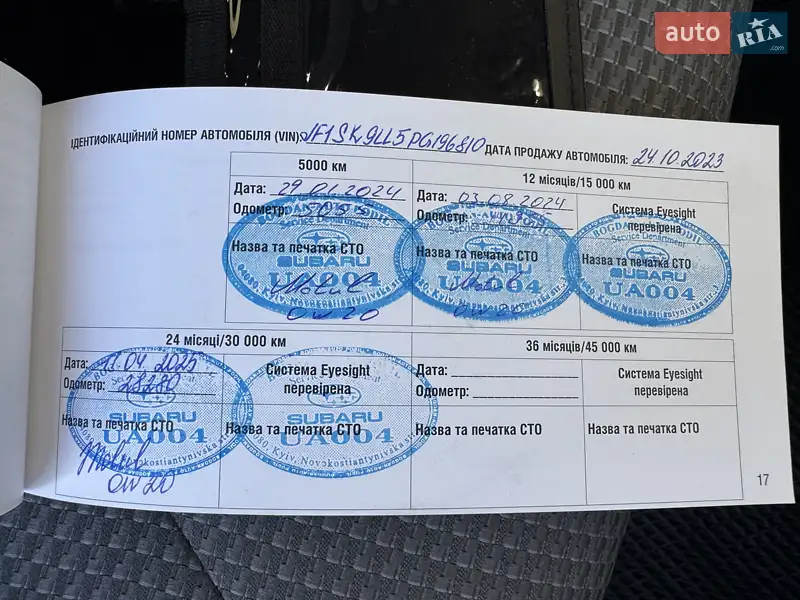 auto RIA .com
ІДЕНТИФІКАЦІЙНИЙ НОМЕР АВТОМОБІЛЯ (VIN): JF1SK9LL5PG196810 ДАТА ПРОДАЖУ АВТОМОБІЛЯ: 24.10.2023
5000 км
12 місяців/15 000 км
Дата: 29.01.2024
Дата: 03.08.2024
Система Eyesight
Одометр: 5055
Одометр:
перевірена
Service Department
Назва та печатка СТО
Назва та печатка СТО
Назва та печатка СТО
SUBARU
SUBARU
SUBARU
UA004
UA004
UA004
Motul
Motul
0W20
0W20
24 місяці/30 000 км
36 місяців/45 000 км
Дата: 04.2025
Система Eyesight
Дата:
Система Eyesight
Одометр: 28280
перевірена
Одометр:
перевірена
Назва та печатка СТО
Назва та печатка СТО
Назва та печатка СТО
Назва та печатка СТО
SUBARU
SUBARU
UA004
UA004
04080, Kyiv, Novokostiantynivska st.
Motul
0W20
17